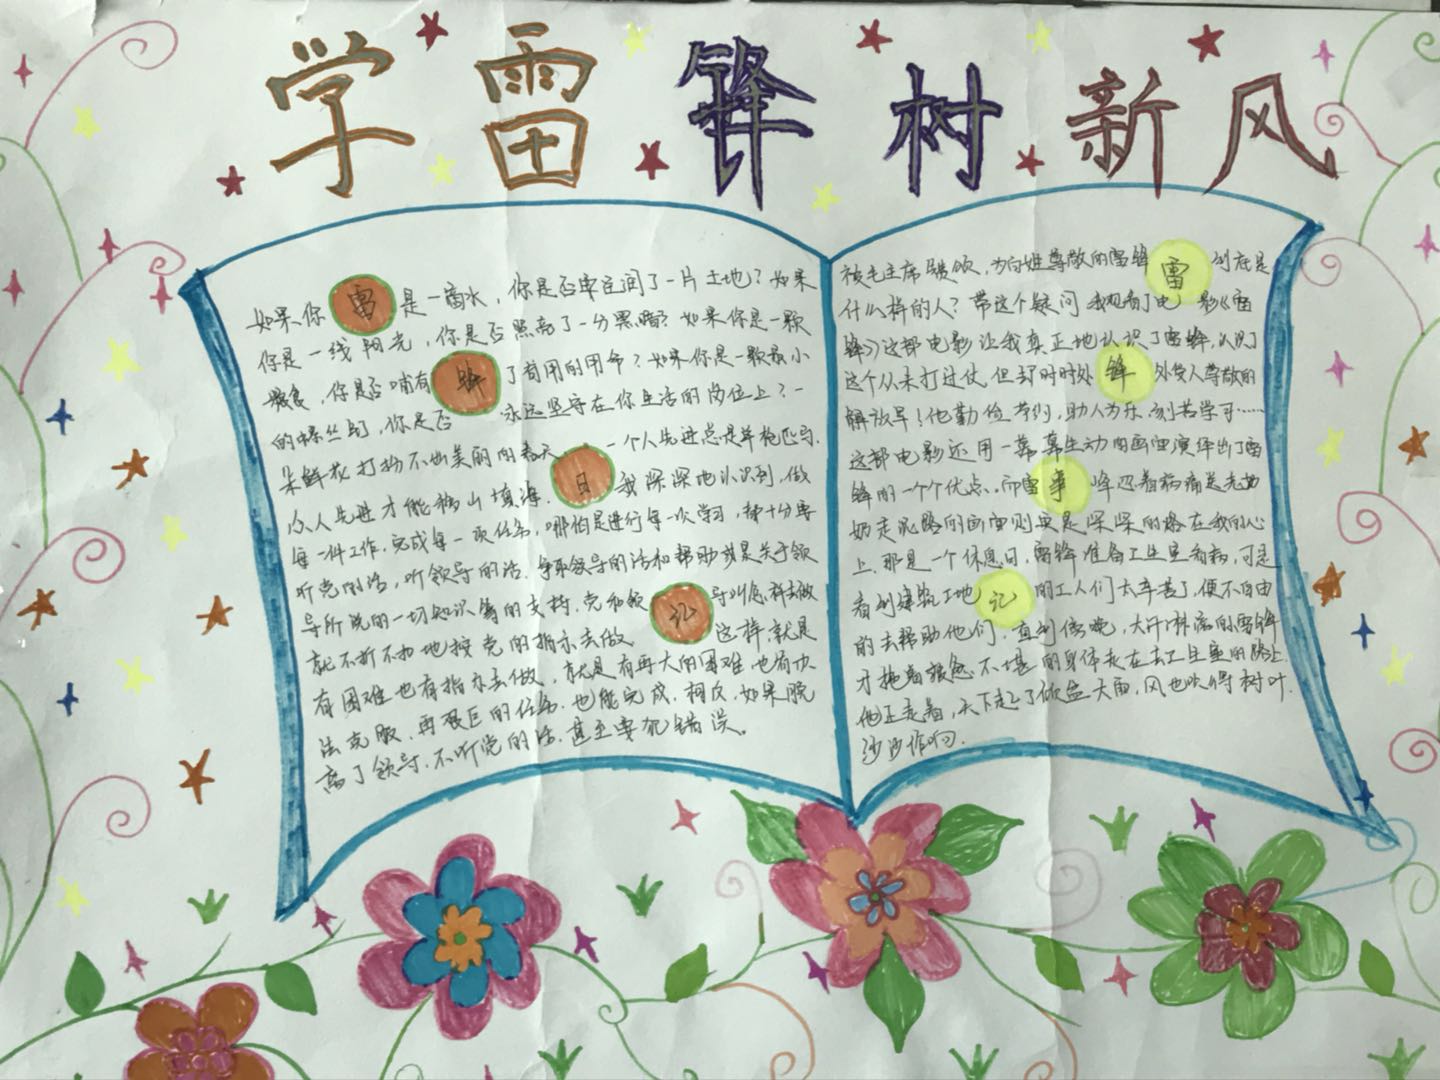 学雷锋树新风
如果你 雷 是一滴水，你是否滋润了一片土地？如果
你是一线阳光，你是否照亮了一分黑暗？如果你是一颗
粮食，你是否哺育 锋 了有用的用命？如果你是一颗最小
的螺丝钉，你是否 永远坚守在你生活的岗位上？一
朵鲜花打扮不出美丽的春天， 一个人先进总是单枪匹马，
众人先进才能移山填海。 日 我深深地认识到，做
每一件工作，完成每一项任务，哪怕是进行每一次学习，都十分要
听党的话，听领导的话，争取领导的话和帮助就是关于领
导所说的一切知识 的支持，党和领 记 导叫怎样去做
就不折不扣地按党的指示去做 这样，就是
有困难也有指示去做，就是有再大的困难也有办
法克服，再艰巨的任务，也能完成，相反，如果脱
离了领导，不听党的话，甚至要犯错误。
被毛主席 领，为百姓尊敬的雷锋 雷 到底是
什么样的人？带这个疑问 我观看了电 影《雷
锋》这部电影让我真正地认识了雷锋，认识了
这个从未打过仗，但却时时处 锋 处受人尊敬的
解放军！他勤俭节约，助人为乐，刻苦学习……
这部电影还用一幕幕生动的画面演绎出了雷
锋的一个个优点。而雷 事 峰忍着病痛送老奶
奶走泥路的画面则更是深深的烙在我的心
上，那是一个休息日，雷锋准备卫生室看病，可是
看到建筑工地 记 的工人们太辛苦了，便不自由
的去帮助他们，直到傍晚，大汗淋漓的雷锋
才拖着疲惫不堪的身体走在去卫生室的路上，
他正走着，天下起了倾盆大雨，风也吹得树叶
沙沙作响。